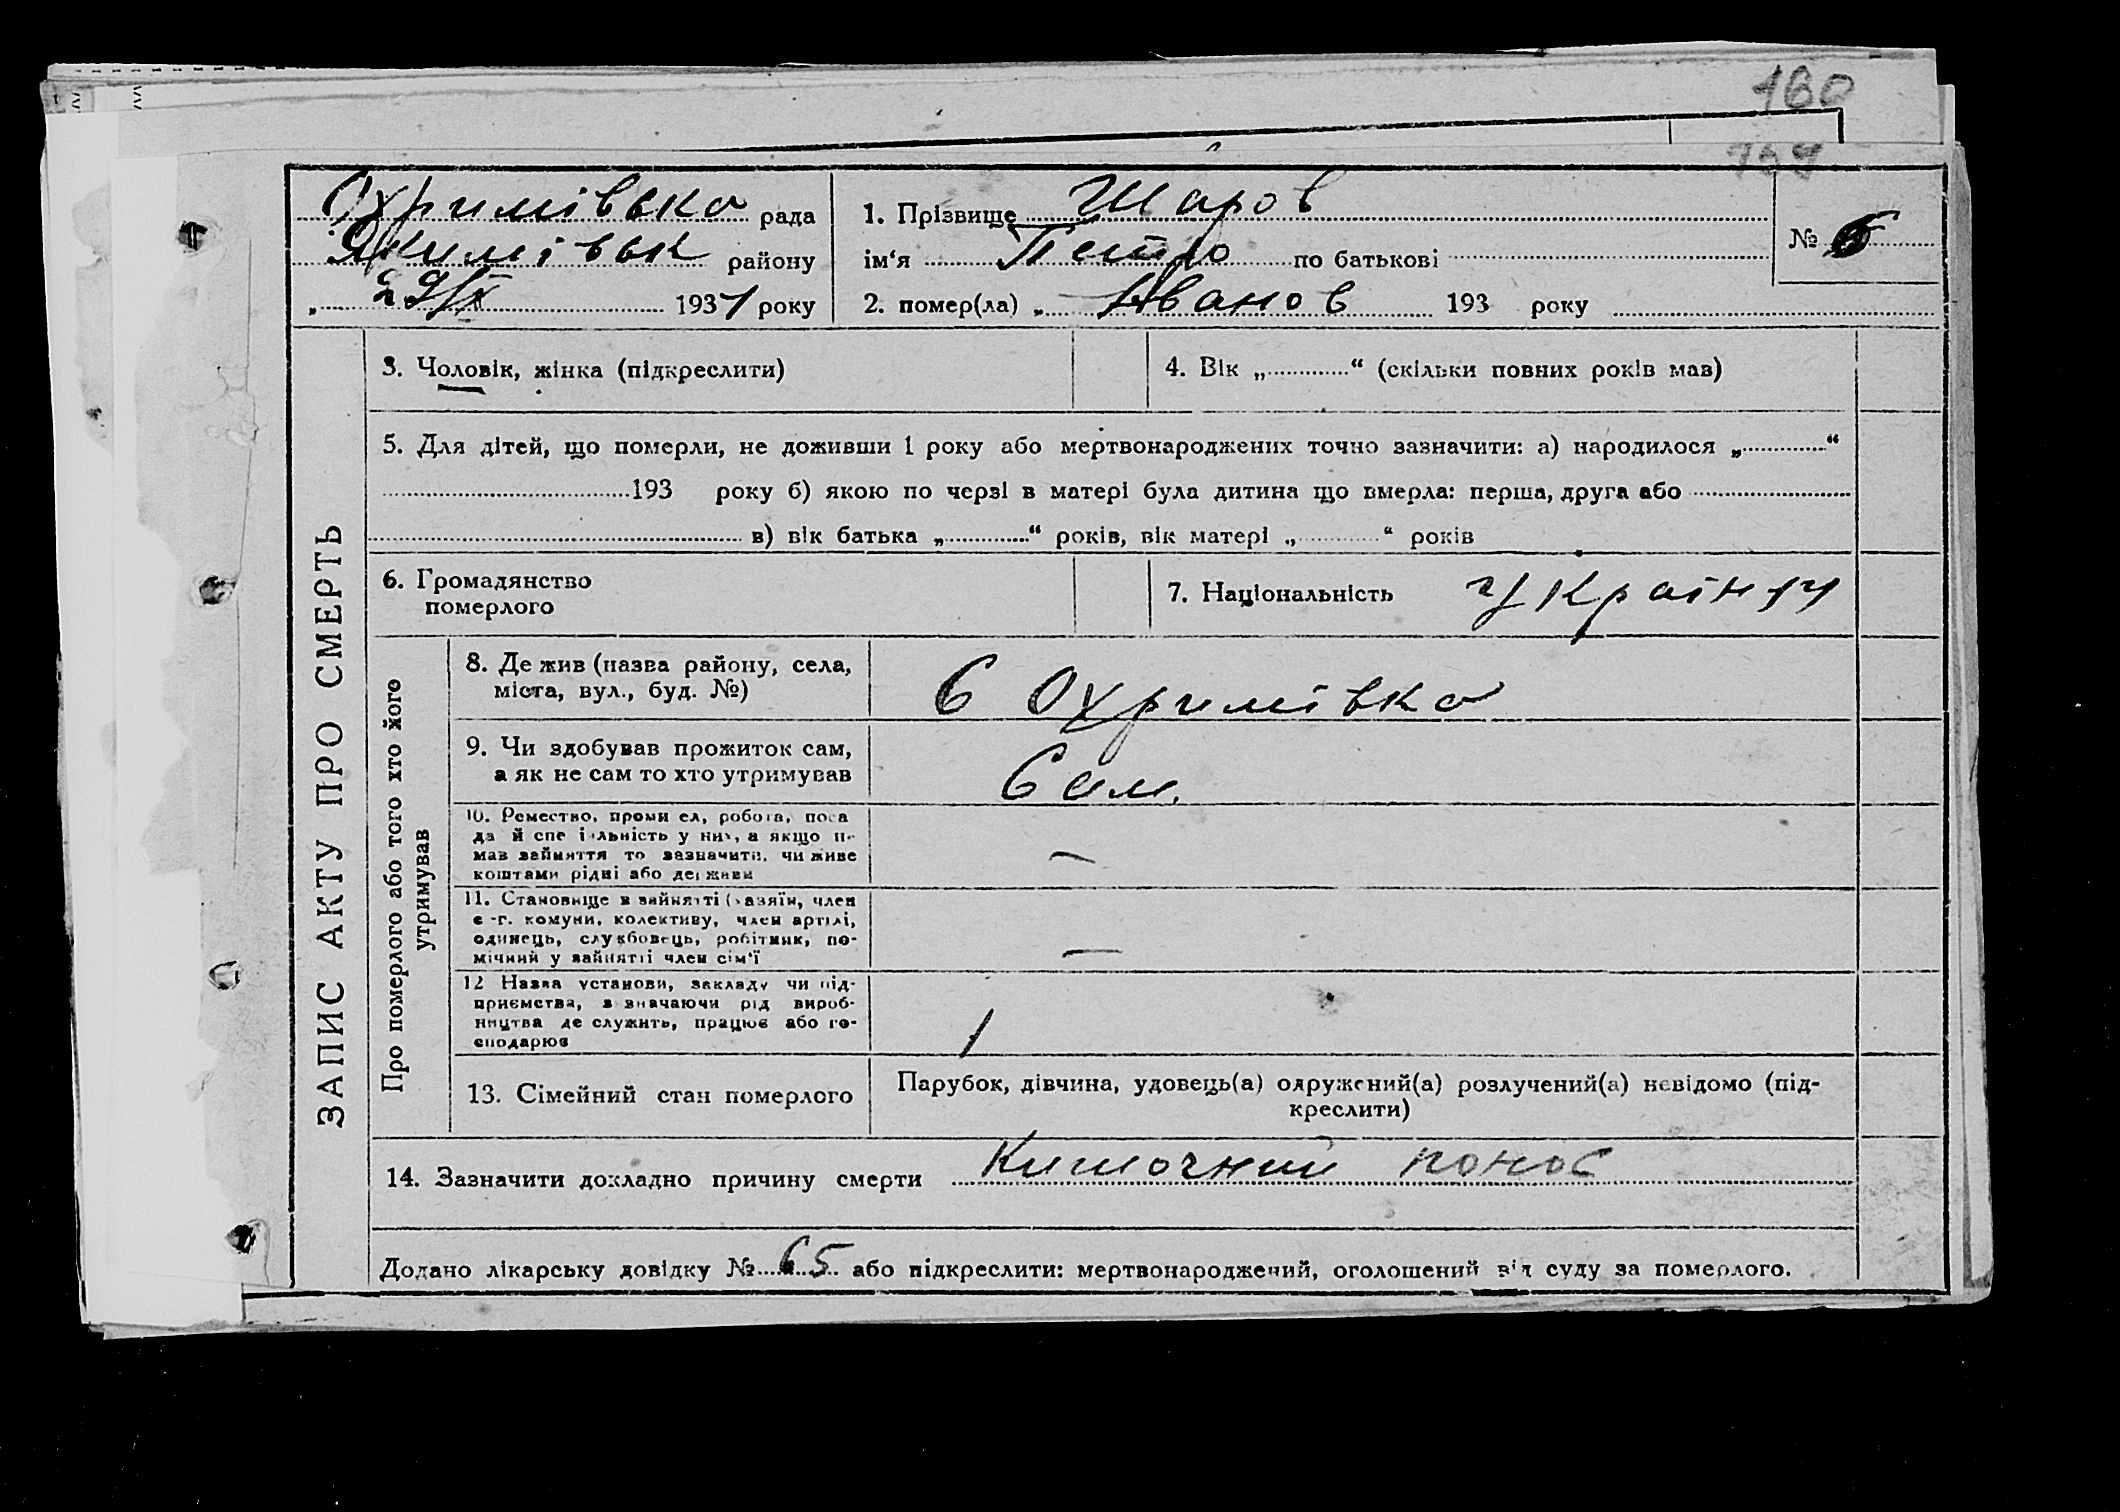 160
Охримівська рада
Якимівськ району
„ 29/X 1931 року
1. Прізвище Шаров
ім‘я Петро по батькові
2. помер(ла) „ Иванов 193 року
№ 6
ЗАПИС АКТУ ПРО СМЕРТЬ
3. Чоловік, жінка (підкреслити)
4. Вік „ “ (скільки повних років мав)
5. Для дітей, що померли, не доживши 1 року або мертвонароджених точно зазначити: а) народилося „ “
193 року б) якою по черзі в матері була дитина що вмерла: перша, друга або
в) вік батька „ “ років, вік матері „ “ років
6. Громадянство
померлого
7. Національність Україну
Про померлого або того хто його
утримував
8. Де жив (назва району, села,
міста, вул., буд. №)
С Охримівка
9. Чи здобував прожиток сам,
а як не сам то хто утримував
Сам.
10. Ремество, проми ел, робота, поса
да й спе іальність у них, а якщо н-
мав зайняття то зазначити, чи живе
коштами рідні або держави
—
11. Становище в зайнятті (хазяїн, член
с -г. комуни, колективу, член артілі,
одинець, службовець, робітник, по-
мічний у зайнятті член сім'ї
—
12 Назва установи, закладу чи під-
приємства, в значаючи рід вироб-
ництва де служить, працює або го-
сподарює
/
13. Сімейний стан померлого
Парубок, дівчина, удовець(а) одружений(а) розлучений(а) невідомо (під-
креслити)
14. Зазначити докладно причину смерти Кишочний понос
Додано лікарську довідку № 65 або підкреслити: мертвонароджений, оголошений від суду за померлого.